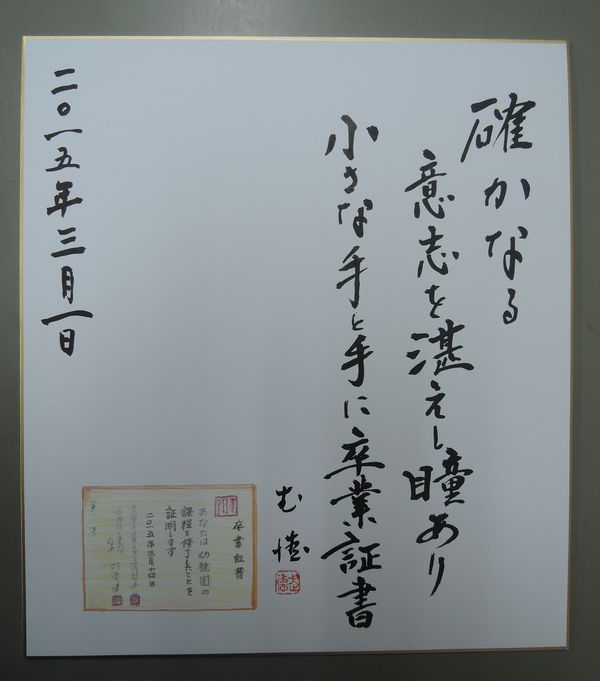 確かなる
意志を湛えし瞳あり
小さな手と手に卒業証書
卒業証書
あなたは幼稚園の
課程を修了したことを
証明します
二〇一五年三月十四日
二〇一五年三月一日